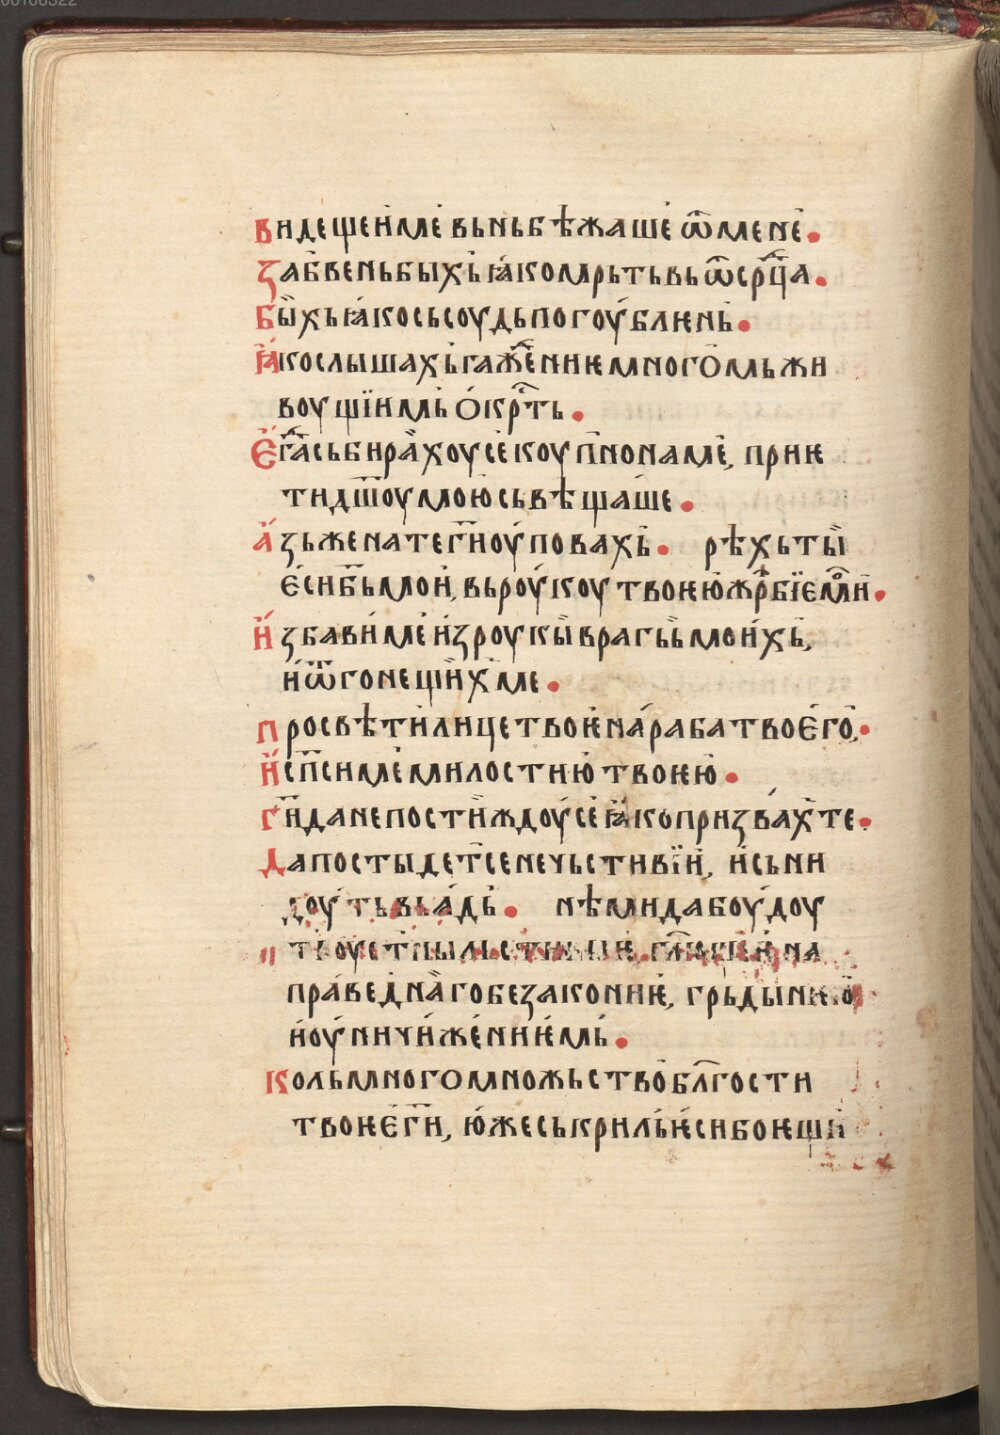 00106322
видещеи́ме́ вьньбѣжаше́ ѿмене́.
забве́ньбыхь꙯ꙗ҆коⷨмрьтьвьѿср҃ца.
бы́хьꙗ҆косьсоудьпогоу́блѥнь.
ꙗ҆кослышахь́гажⷣе́ниѥмногомьжи
воущїимь о́крⷭ҇ть.
е҆гдⷶа҆сьбира́хоусе́коупⷩ҇онаме́, приѥ
тидш҃оумою҆сьвѣща́ше.
а҆́зьженатегⷭ҇иоу́повахь. рѣхьты̀
е҆сиб҃ьмои́, вьроу́коутвоѥю҆жрⷹ҇бїемои҆.
и҆́збави́меи҆зроукы̀врагьмои́хь,
и҆ѿгонещи́хме.
просвѣти́лицетвоѥ҆на́рабатвоѥ҆го̀.
и҆́сп҃симе́милостию҆твоѥю҆.
гⷭ҇иданепости́ждоу́се́ꙗ҆копризва́хте.
дапостыдет꙯сенечьстивїи, и҆сьни
доу́тьвьа́дь. нѣмидабоу́доу
тьоустны
пра́веднагобезакониѥ, грьдынѥю
и҆оуничиже́ниѥмь.
кольмногомножьствоблⷢ҇ости
твоѥе҆гⷭ҇и, ю҆жеськрильѥ҆сибоѥщи